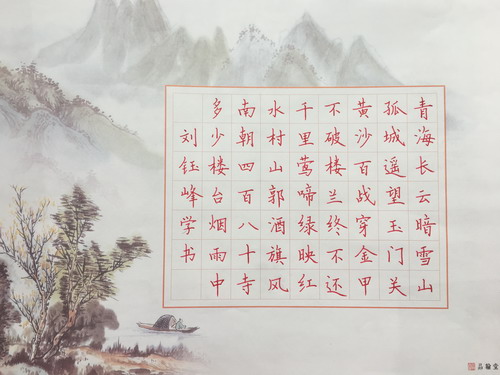 青海长云暗雪山
孤城遥望玉门关
黄沙百战穿金甲
不破楼兰终不还
千里莺啼绿映红
水村山郭酒旗风
南朝四百八十寺
多少楼台烟雨中
刘钰峰学书
品翰堂